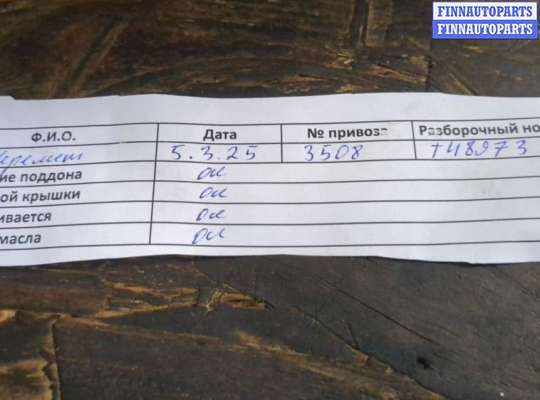 FINNAUTOPARTS
FINNAUTOPARTS
Ф.И.О. Дата № привоза Разборочный но
5.3.25 3508 т48973
ие поддона ок
ой крышки ок
ивается ок
масла ок